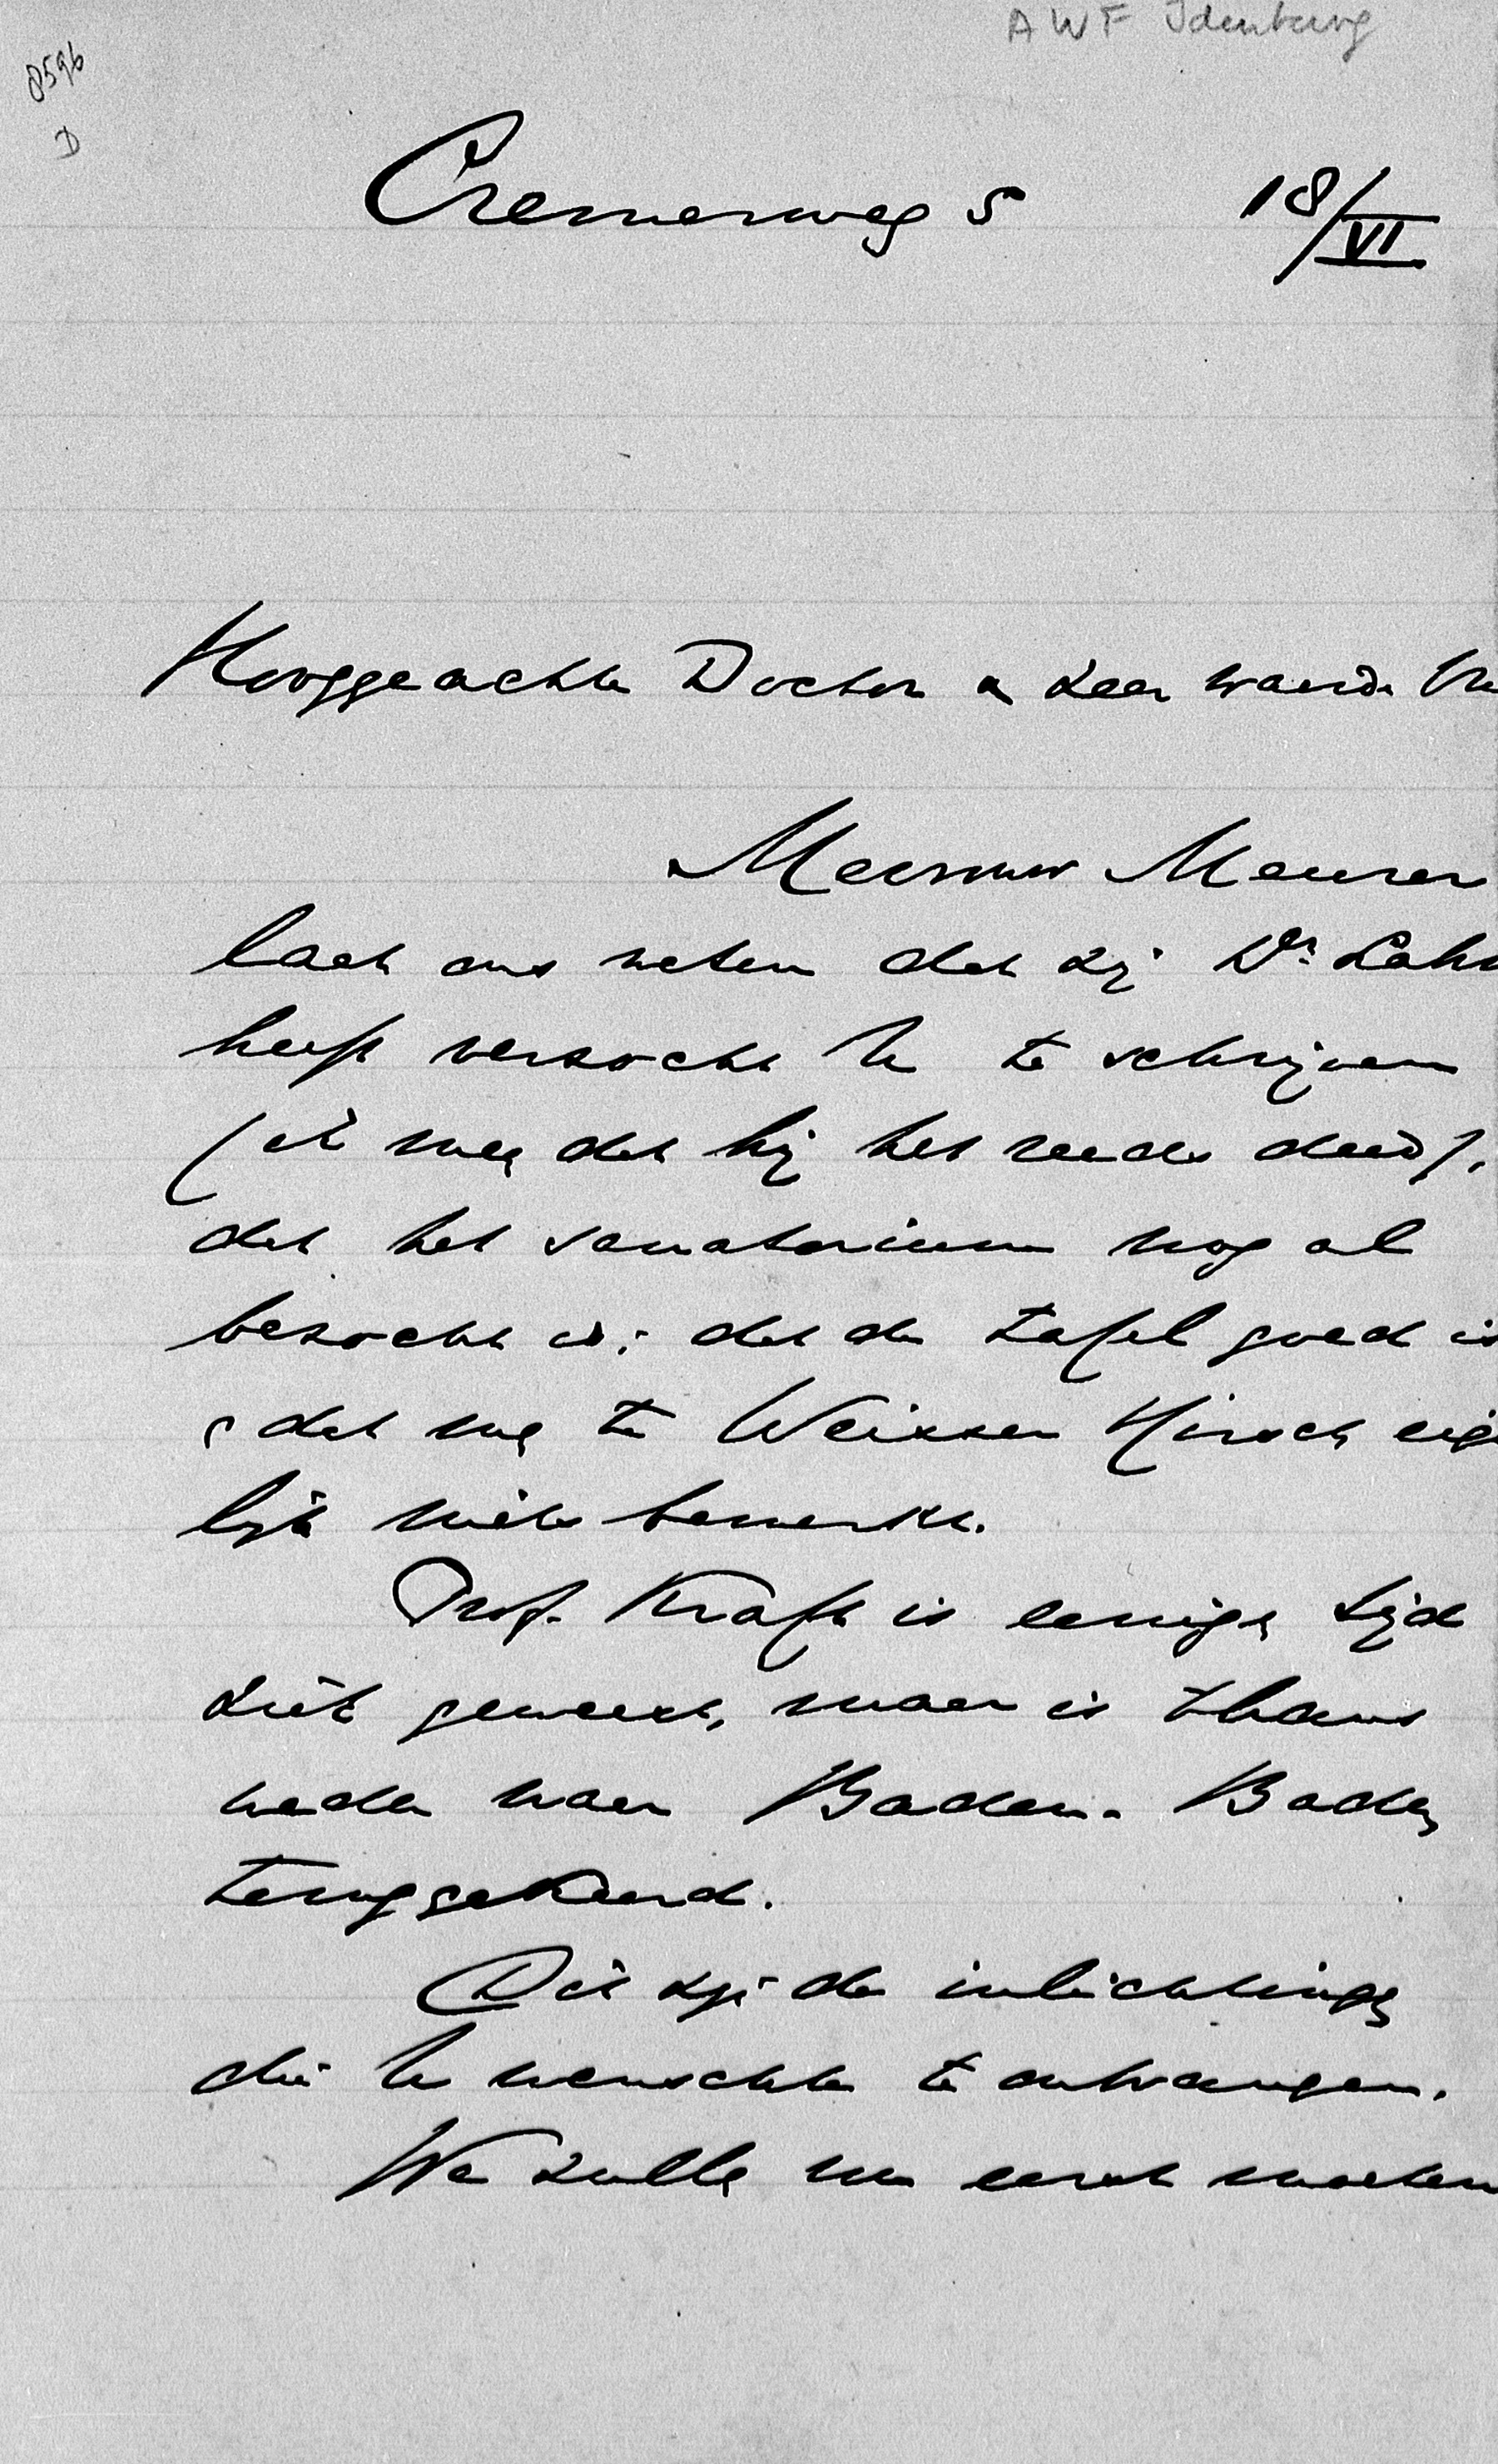 AWF Idenburg
8596
D
Cremerweg 5 18/VI
Hooggeachte Doctor & zeer waarde Vr
Mevrouw Meurer
laat ons weten dat zij Dr. Lahm
heeft verzocht U te schrijven
(ik meen dat hij het reeds deed),
dat het sanatorium nog al
bezocht is; dat de tafel goed is
& dat men te Weisser Hirsch eigen
lijk niets bemerkt.
Prof. Kraft is eenige tijd
ziek geweest, maar is thans
weder naar Baden-Baden
teruggekeerd.
Dit zijn de inlichtingen
die U wenschte te ontvangen.
We zullen nu eerst moeten